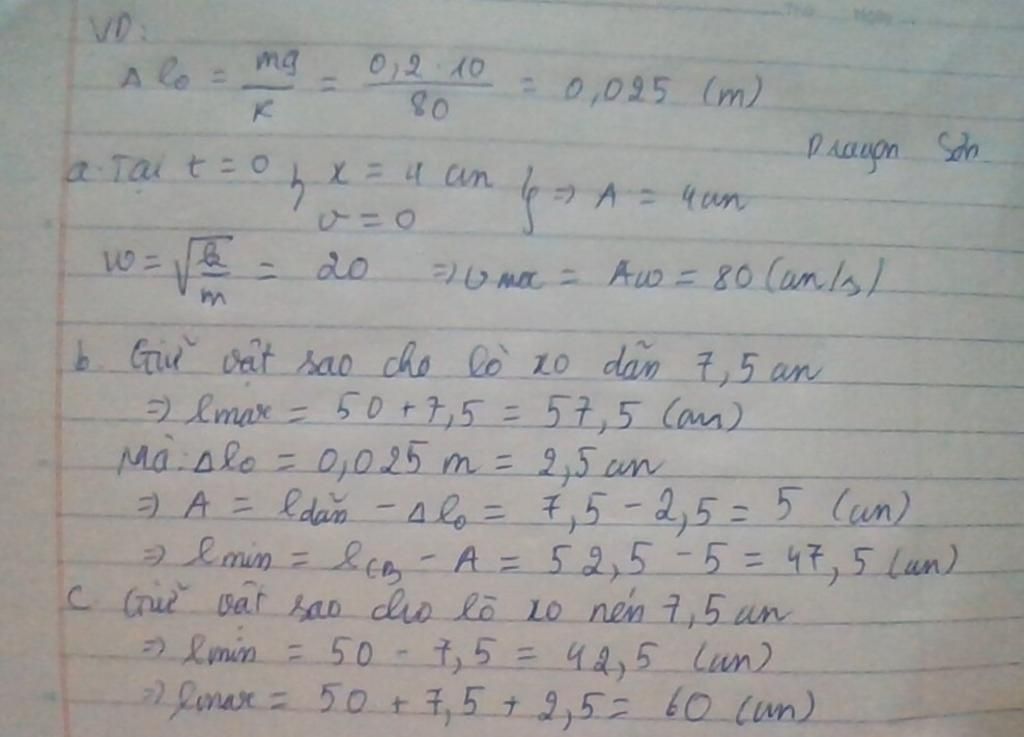 VD:
Δl₀ = mg/K = 0,2 · 10/80 = 0,025 (m)
a. Tại t = 0 { x = 4 cm } => A = 4cm
v = 0
ω = √k/m = 20 => vmax = Aω = 80 (cm/s)
b. Giữ vật sao cho lò xo dãn 7,5 cm
=> lmax = 50 + 7,5 = 57,5 (cm)
Mà: Δl₀ = 0,025 m = 2,5 cm
=> A = ldãn - Δl₀ = 7,5 - 2,5 = 5 (cm)
=> lmin = lCB - A = 52,5 - 5 = 47,5 (cm)
c. Giữ vật sao cho lò xo nén 7,5 cm
=> lmin = 50 - 7,5 = 42,5 (cm)
=> lmax = 50 + 7,5 + 2,5 = 60 (cm)